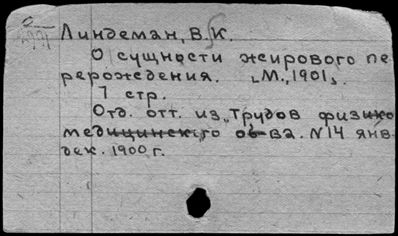 Линдеман, В.К.
О сущности жирового пе-
рерождения. [М., 1901].
7 стр.
Отд. отт. из „Трудов физико
медицинского об-ва. N14 янв-
дек. 1900 г.